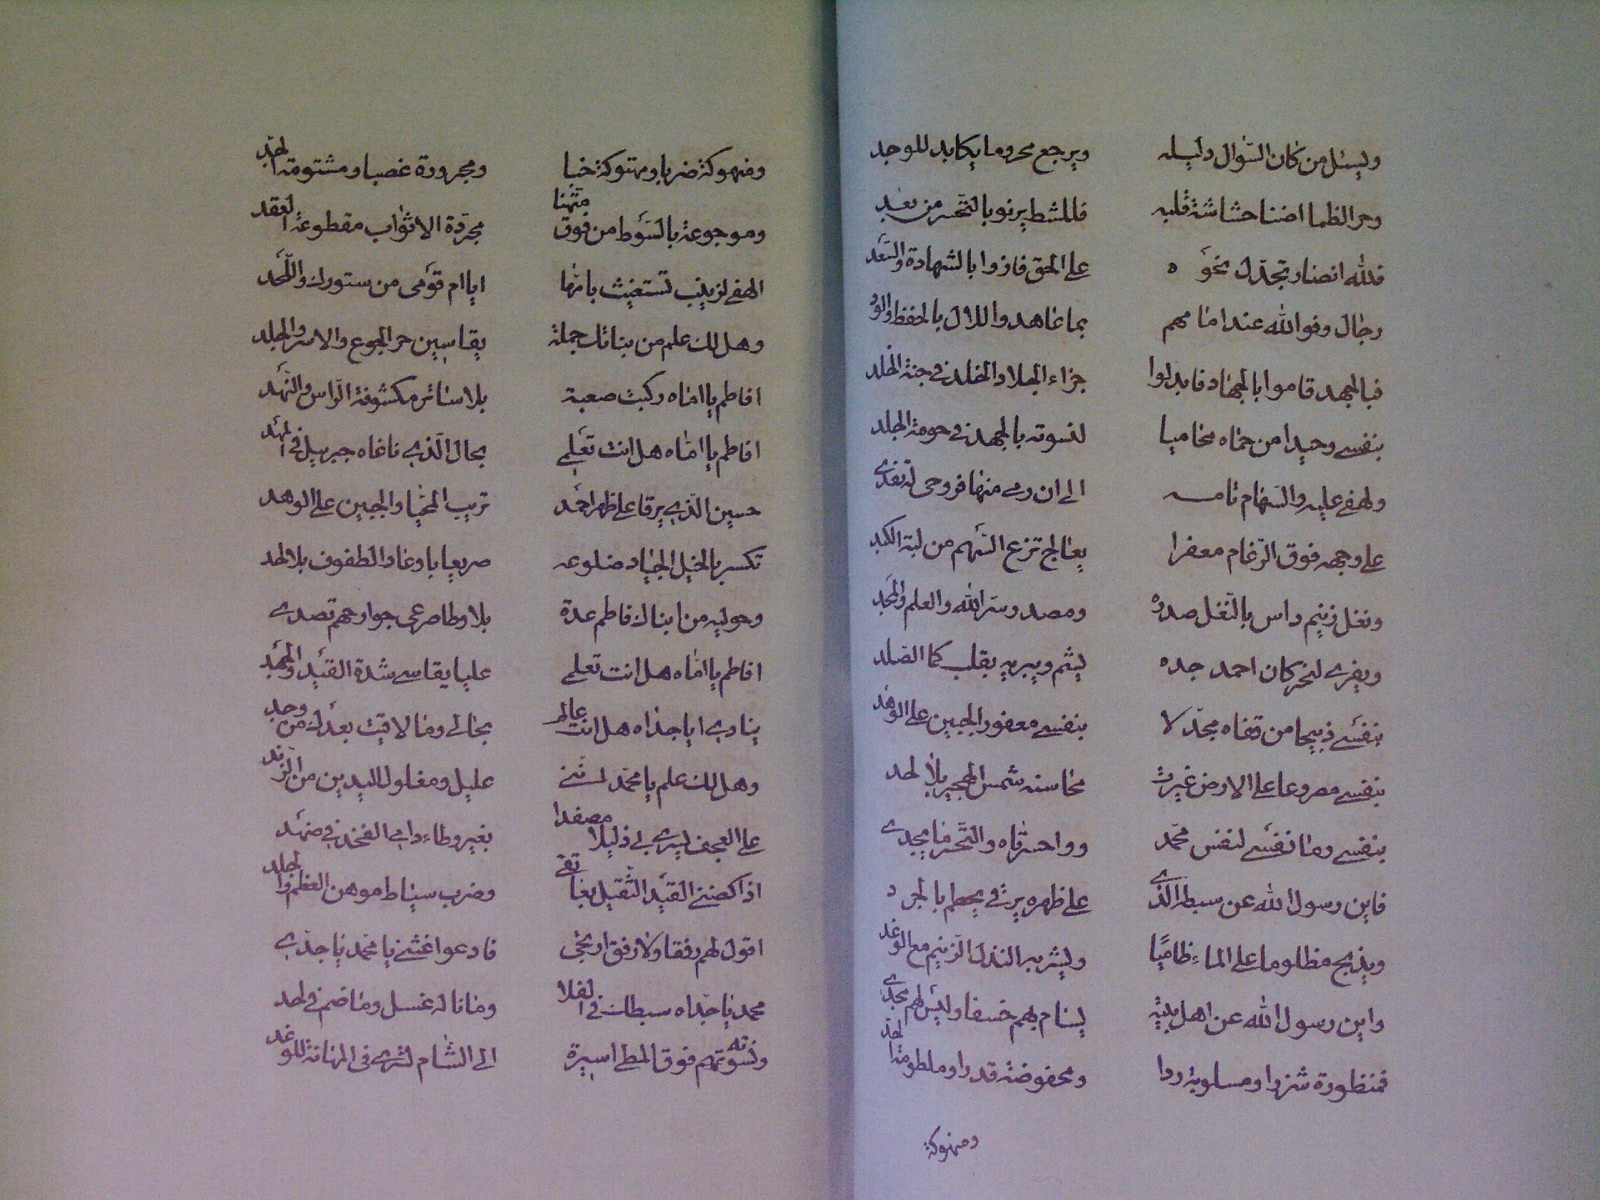 وليسئل من كان السؤال دليله ويرجع محروما يكابد للوجد
وحر الظما اضنا حشاشة قلبه فللشط يرنو بالتحسر من بعد
فلله انصار تجدل نحوه على الحق فازوا بالشهادة والسعد
رجال وفوا لله عند امامهم بما عاهدوا اللال بالحفظ والود
فبالجهد قاموا بالجهاد فابدلوا جزاء الجلاد الخلد في جنة الخلد
بنفسي وحيدا من حماه محاميا لنسوته بالجهد في حومة الجلد
ولهفي عليه والسهام تامـه الى ان رمى منها فروحى له تفدى
على وجهه فوق الرغام معفرا يعالج نزع السهم من لبة الكبد
ونغل زنيم داس بالنعل صدره ومصدر سر الله والعلم والمجد
ويفرى لنحر كان احمد جده ليثم ويبريه بقلب كما الصلد
بنفسي ذبيحا من قفاه مجدلا بنفسي معفور الجبين على الوهد
بنفسي مصروعا على الارض غيرت محاسنه شمس الهجير بلا لحد
بنفسي وما نفسي لنفس محمد وواحسرتاه والتحسر ما يجدى
فاين رسول الله عن سبطه الذى على ظهره يرقى يحطم بالجرد
ويذبح مظلوما على الماء ظاميًا ويشربه النذل الزنيم مع الوغد
واين رسول الله عن اهل بيته يسام بهم خسفا وليس لهم مجدى
فمنظورة شزرا ومسلوبة ردا ومخفوضة قدرا وملطومة الخد
ومنهوكة
ومنهوكة ضربا ومهتوكة خبا ومجرورة غصبا ومشتومة الجد
وموجوعة بالسوط من فوق متنها مجردة الاثواب مقطوعة العقد
الهفي لزينب تستغيث بامها ايا ام قومى من ستورك واللحد
وهل لك علم من بناتك جملة يقاسين حر الجوع والاسر والجلد
افاطم يا اماه ركبت صعبة بلا ساتر مكشوفة الراس والنهد
افاطم يا اماه هل انت تعلمي بحال الذى ناغاه جبريل في المهد
حسين الذى يرقا على ظهر احمد تريب المحيا والجبين على الوهد
تكسر بالخيل الجياد ضلوعه صريعا باوغاد الطفوف بلا لحد
وحوليه من ابناك فاطم عدة بلا وطا صرعى جوارحهم تصدى
افاطم يا اماه هل انت تعلمي عليا يقاسي شدة القيد والجهد
ينادى ايا جداه هل انت عالم بحالي وما لاقيت بعدك من وجد
وهل لك علم يا محمد انني عليل ومغلول اليدين من الزند
على العجف ليسرى بي ذليلا مصفدا بغير وطاء دامي الفخذ في ضهد
اذا كضني القيد الثقيل بغاتقي وضرب سياط موهن العظم والجلد
اقول لهم رفقا ولا رفق ارتجى فادعو اغثني يا محمد يا جدى
محمد يا جداه سبطك في الفلا وما ناله غسل وما ضم في لحد
ونسوته تهم فوق المطى اسيرة الى الشام تسرى في المهانة للوغد